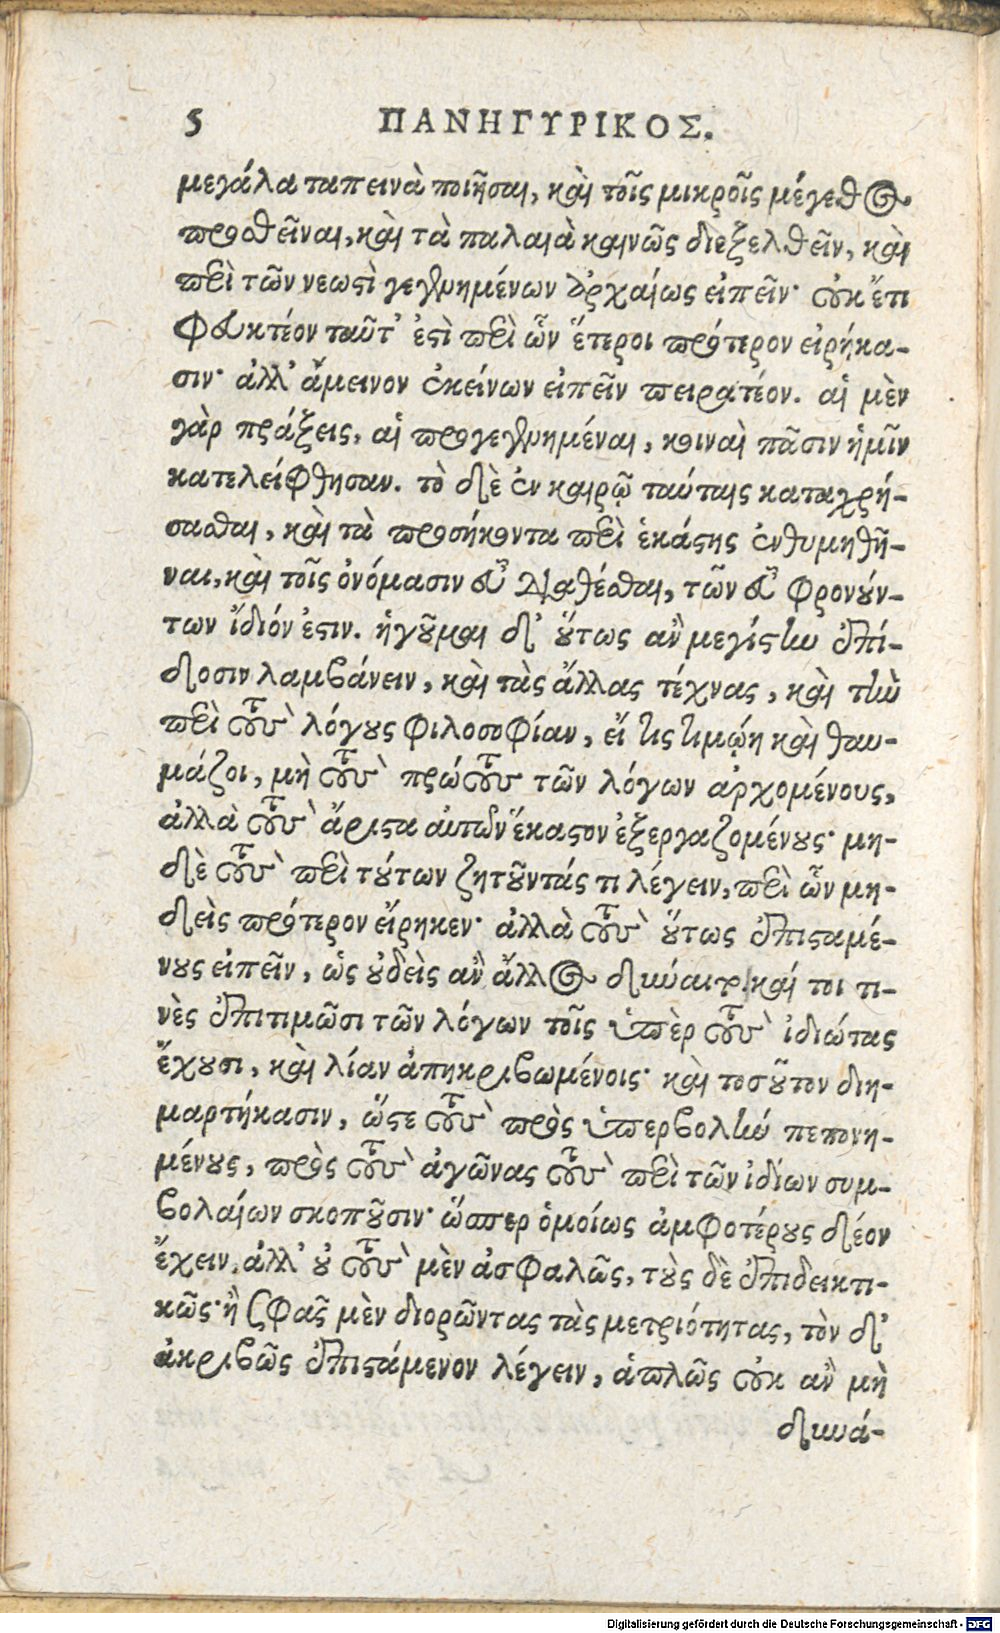 5 ΠΑΝΗΓΥΡΙΚΟΣ.
μεγάλα ταπεινὰ ποιῆσαι, καὶ τοῖς μικροῖς μέγεθος
προσθεῖναι, καὶ τὰ παλαιὰ καινῶς διεξελθεῖν, καὶ
περὶ τῶν νεωστὶ γεγενημένων ἀρχαίως εἰπεῖν· οὐκ ἔτι
φευκτέον ταῦτ' ἐστὶ περὶ ὧν ἕτεροι πρότερον εἰρήκα-
σιν· ἀλλ' ἄμεινον ἐκείνων εἰπεῖν πειρατέον. αἱ μὲν
γὰρ πράξεις, αἱ προγεγενημέναι, κοιναὶ πᾶσιν ἡμῖν
κατελείφθησαν. τὸ δὲ ἐν καιρῷ ταύταις καταχρή-
σασθαι, καὶ τὰ προσήκοντα περὶ ἑκάστης ἐνθυμηθῆ-
ναι, καὶ τοῖς ὀνόμασιν εὖ διαθέσθαι, τῶν εὖ φρονούν-
των ἴδιόν ἐστιν. ἡγοῦμαι δ' οὕτως ἂν μεγίστην ἐπί-
δοσιν λαμβάνειν, καὶ τὰς ἄλλας τέχνας, καὶ τὴν
περὶ τοὺς λόγους φιλοσοφίαν, εἴ τις τιμῴη καὶ θαυ-
μάζοι, μὴ τοὺς πρώτους τῶν λόγων ἀρχομένους,
ἀλλὰ τοὺς ἄριστα αὐτῶν ἕκαστον ἐξεργαζομένους· μη-
δὲ τοὺς περὶ τούτων ζητοῦντάς τι λέγειν, περὶ ὧν μη-
δεὶς πρότερον εἴρηκεν· ἀλλὰ τοὺς οὕτως ἐπισταμέ-
νους εἰπεῖν, ὡς οὐδεὶς ἂν ἄλλος δύναιτο. καί τοι τι-
νὲς ἐπιτιμῶσι τῶν λόγων τοῖς ὑπὲρ τοὺς ἰδιώτας
ἔχουσι, καὶ λίαν ἀπηκριβωμένοις· καὶ τοσοῦτον διη-
μαρτήκασιν, ὥστε τοὺς πρὸς ὑπερβολὴν πεπονη-
μένους, πρὸς τοὺς ἀγῶνας τοὺς περὶ τῶν ἰδίων συμ-
βολαίων σκοποῦσιν· ὥσπερ ὁμοίως ἀμφοτέρους δέον
ἔχειν, ἀλλ' οὐ τοὺς μὲν ἀσφαλῶς, τοὺς δὲ ἐπιδεικτι-
κῶς· ἢ σφᾶς μὲν διορῶντας τὰς μετριότητας, τὸν δ'
ἀκριβῶς ἐπιστάμενον λέγειν, ἁπλῶς οὐκ ἂν μὴ
δυνά-
Digitalisierung gefördert durch die Deutsche Forschungsgemeinschaft - DFG